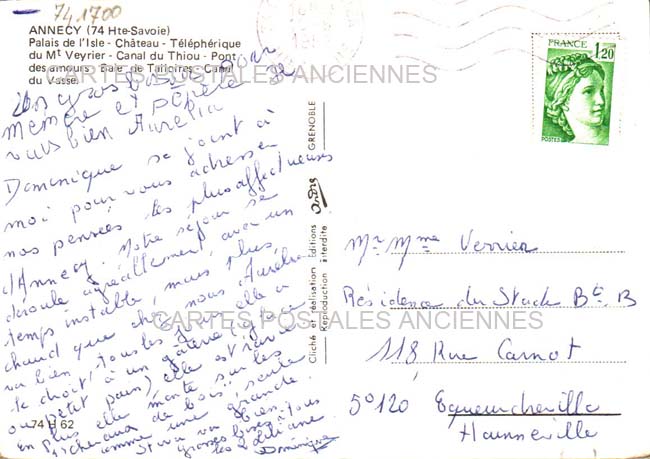 741700
ANNECY (74 Hte-Savoie)
Palais de l'Isle - Château - Téléphérique
du Mt Veyrier - Canal du Thiou - Pont
des amours - Baie de Talloires - Canal
du Vassé
CARTES POSTALES ANCIENNES
Un gros pour
mémère et pépère de
vous bien Aurélia
Dominique se joint à
moi pour vous adresser
nos pensées les plus affectueuses
d'Annecy. Notre séjour se
déroule agréablement avec un
temps instable, mais plus
chaud que chez nous. Aurélia
va bien, tous les jours elle a
le choix à un gâterie (glace
ou petit pain) elle est ravie
en plus elle monte sur les
chevaux de bois seule
comme une grande.
va bien.
Grosses bises à tous
les
Dominique
74 H 62
Cliché et réalisation Editions André GRENOBLE
Reproduction interdite
FRANCE
1,20
POSTES
Mr Mme Verrier
Résidence du Stade Bt B
118 Rue Carnot
50120 Equeurdreville
Hainneville
CARTES POSTALES ANCIENNES